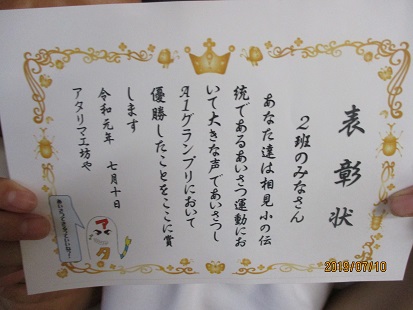 表彰状
2班のみなさん
あなた達は相見小の伝
統であるあいさつ運動にお
いて大きな声であいさつし
A1グランプリにおいて
優勝したことをここに賞
します
令和元年 七月十日
アタリマ工坊や
ア
タ
2019/07/10